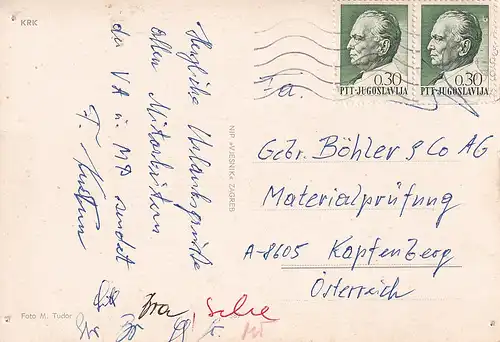 KRK
Herzliche Urlaubsgrüße
allen Mitarbeitern
der VA u. MP sendet
F.
NIP »VJESNIK« ZAGREB
0.30
PTT-JUGOSLAVIJA
0.30
PTT-JUGOSLAVIJA
Fa.
Gebr. Böhler & Co AG
Materialprüfung
A-8605 Kapfenberg
Österreich
Foto M. Tudor